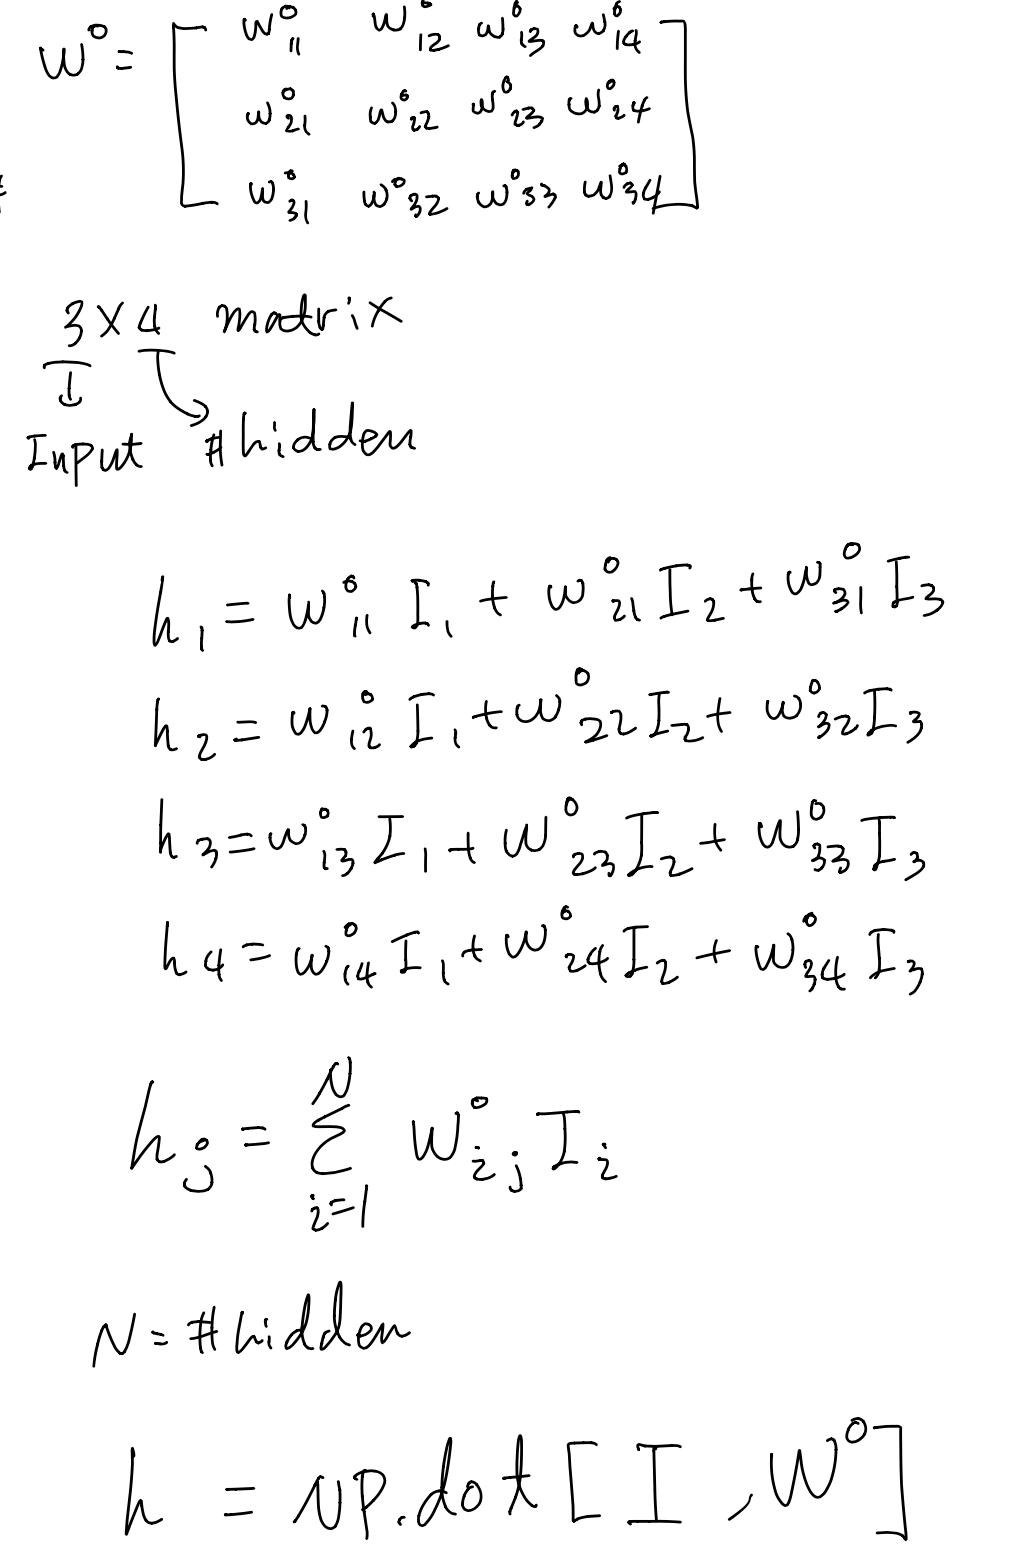 w⁰ = [ w⁰₁₁ w⁰₁₂ w⁰₁₃ w⁰₁₄
w⁰₂₁ w⁰₂₂ w⁰₂₃ w⁰₂₄
w⁰₃₁ w⁰₃₂ w⁰₃₃ w⁰₃₄ ]
3 × 4 matrix
Input #hidden
h₁ = w⁰₁₁ I₁ + w⁰₂₁ I₂ + w⁰₃₁ I₃
h₂ = w⁰₁₂ I₁ + w⁰₂₂ I₂ + w⁰₃₂ I₃
h₃ = w⁰₁₃ I₁ + w⁰₂₃ I₂ + w⁰₃₃ I₃
h₄ = w⁰₁₄ I₁ + w⁰₂₄ I₂ + w⁰₃₄ I₃
hⱼ = Σᵢ₌₁ᴺ w⁰ᵢⱼ Iᵢ
N = #hidden
h = NP.dot [ I , W⁰ ]